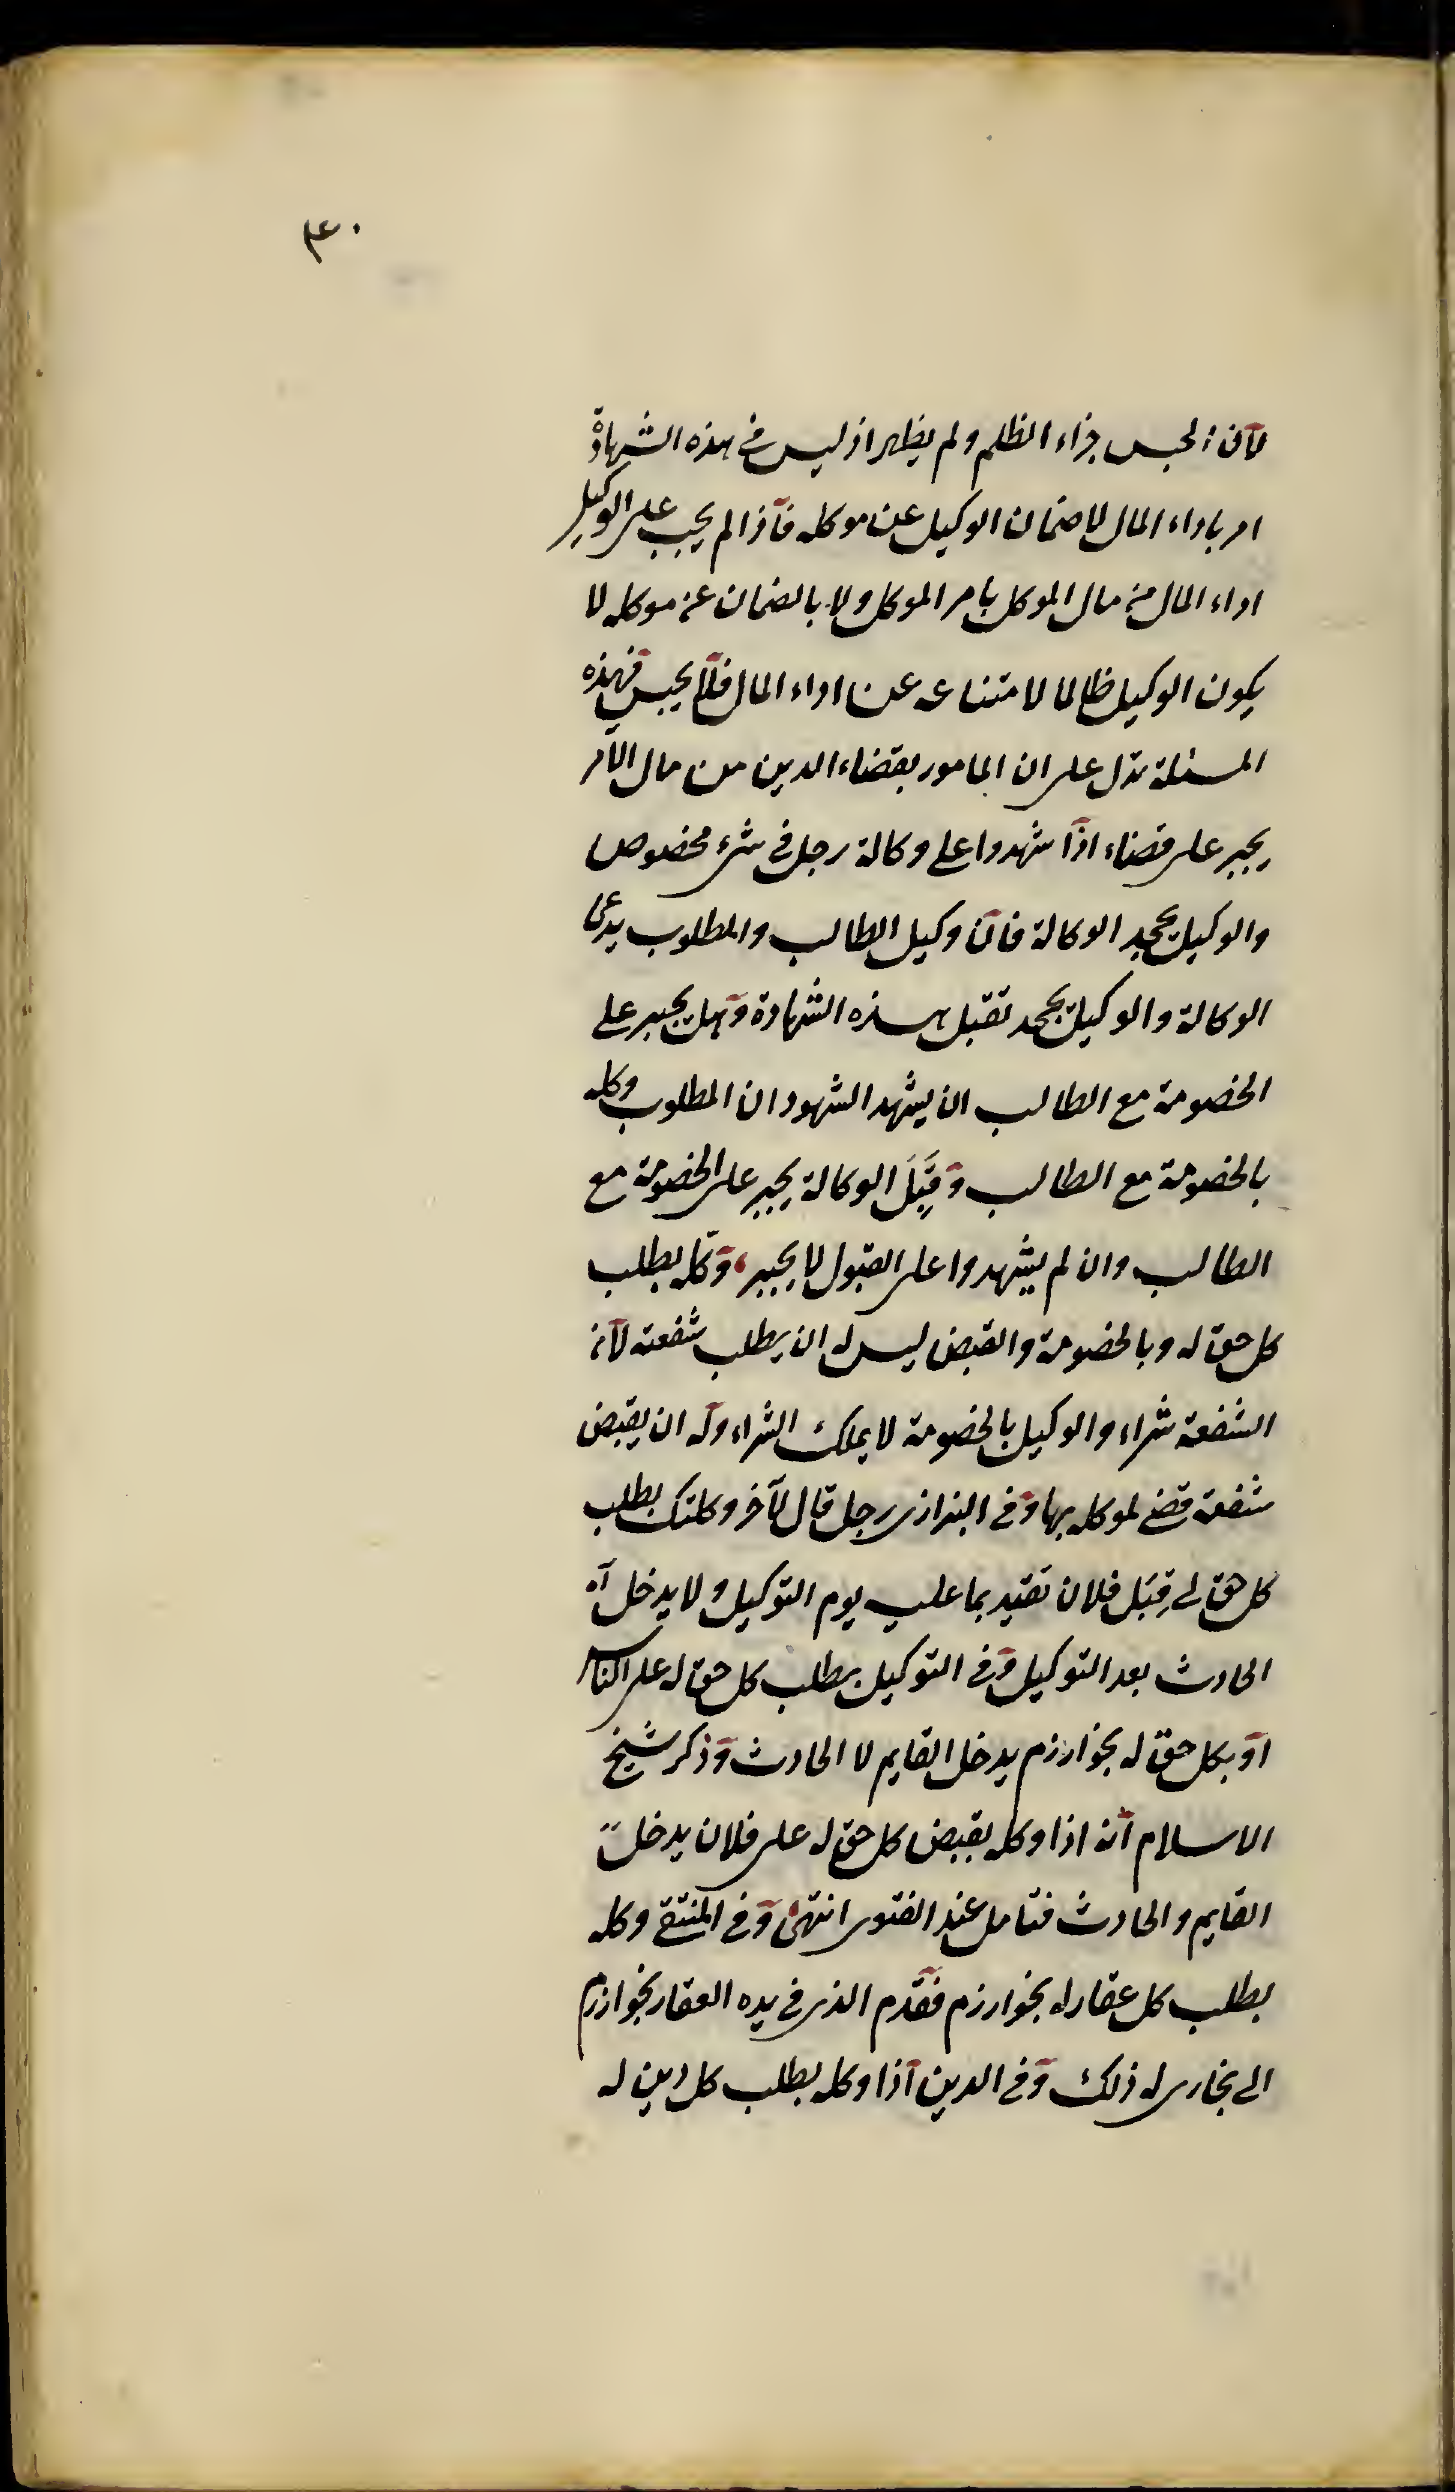 ٣٠
لان الحبس جزاء الظلم ولم يظهر اذ ليس فى هذه الشهادة
امر باداء المال لا ضمان الوكيل عن موكله فاذا لم يجب على الوكيل
اداء المال من مال الموكل بامر الموكل ولا بالضمان عن موكله لا
يكون الوكيل ظالما لامتناعه عن اداء المال فلا يحبس فهذه
المسئلة تدل على ان المامور بقضاء الدين من مال الآمر
يجبر على قضاء اذا شهدوا على وكالة رجل فى شئ مخصوص
والوكيل يجحد الوكالة فان وكيل الطالب والمطلوب يدعى
الوكالة والوكيل يجحد تقبل هذه الشهادة وهل يجبر على
الخصومة مع الطالب ان يشهد الشهود ان المطلوب وكله
بالخصومة مع الطالب وقَبِلَ الوكالة يجبر على الخصومة مع
الطالب وان لم يشهدوا على القبول لا يجبر، وكله بطلب
كل حق له وبالخصومة والقبض ليس له ان يطلب شفعته لان
الشفعة شراء والوكيل بالخصومة لا يملك الشراء وله ان يقبض
شفعة قضى لموكله بها وفى البزازى رجل قال لآخر وكلتك بطلب
كل حق لى قِبَل فلان تقيد بما عليه يوم التوكيل ولا يدخل
الحادث بعد التوكيل وفى التوكيل بطلب كل حق له على الناس
او بكل حق له بخوارزم يدخل القايم لا الحادث وذكر شيخ
الاسلام انه اذا وكله بقبض كل حق له على فلان يدخل
القايم والحادث فتامل عند الفتوى انتهى وفى المنتقى وكله
بطلب كل عقار له بخوارزم فقدم الذى فى يده العقار بخوارزم
الى بخارى له ذلك وفى الدين اذا وكله بطلب كل دين له